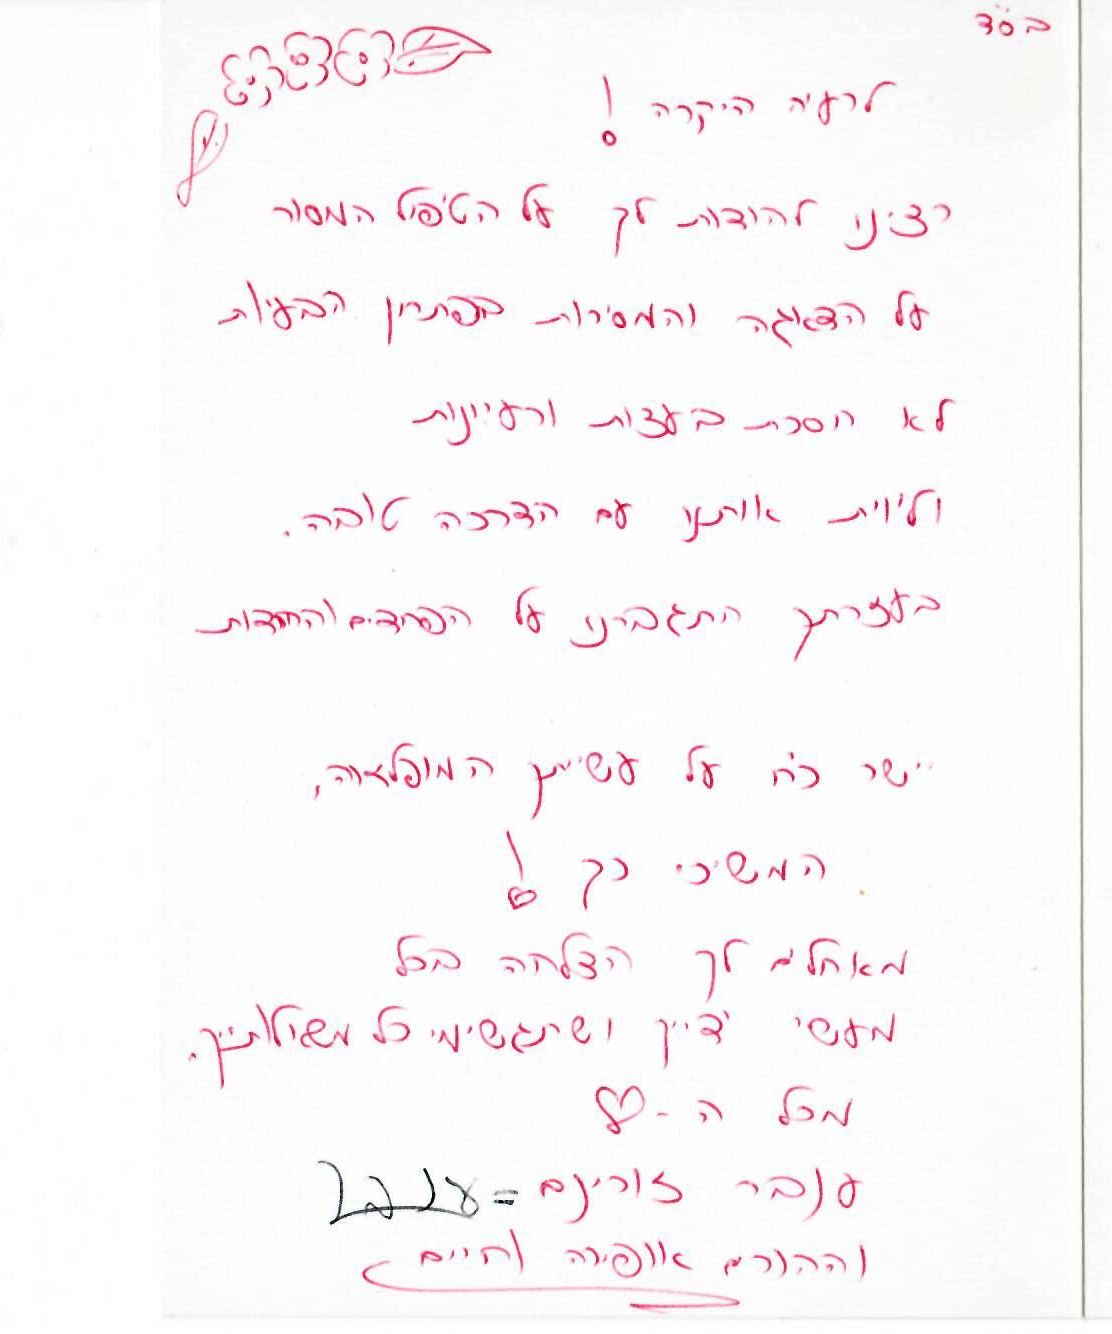 בס"ד
לרעיה היקרה!
רצינו להודות לך על הטיפול המסור
על הדאגה והמסירות בפתרון הבעיות
לא חסכת בעצות ורעיונות
וליווית אותנו עם הדרכה טובה.
בעזרתך התגברנו על הפחדים והחרדות
יישר כח על עשייתך המופלאה,
המשיכי כך!
מאחלים לך הצלחה בכל
מעשי ידייך ושתגשימי כל משאלותייך.
מכל ה-♡
ענבר זורינם = ענבר
וההורים אופירה וחיים